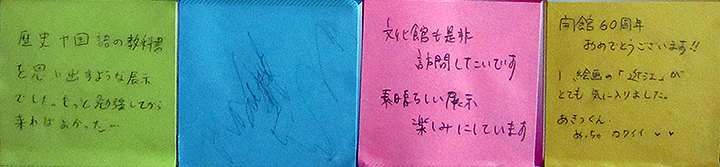 歴史や国語の教科書
を思い出すような展示
でした。もっと勉強してから
来ればよかった…
文化館も是非
訪問したいです
素晴らしい展示
楽しみにしています
開館60周年
おめでとうございます!!
絵画の「近江」が
とても気に入りました。
あきつくん
めっちゃカワイイ